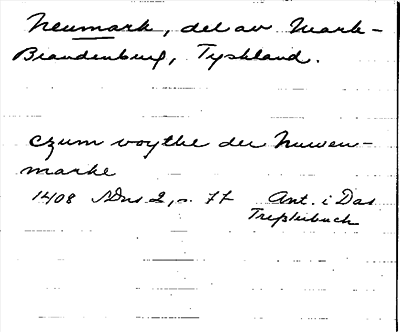 Neumark, del av Mark-
Brandenburg, Tyskland.
czum voythe der Nuwen-
marke
1408 SDns 2, s. 77 Ant. i Das
Tresslerbuch